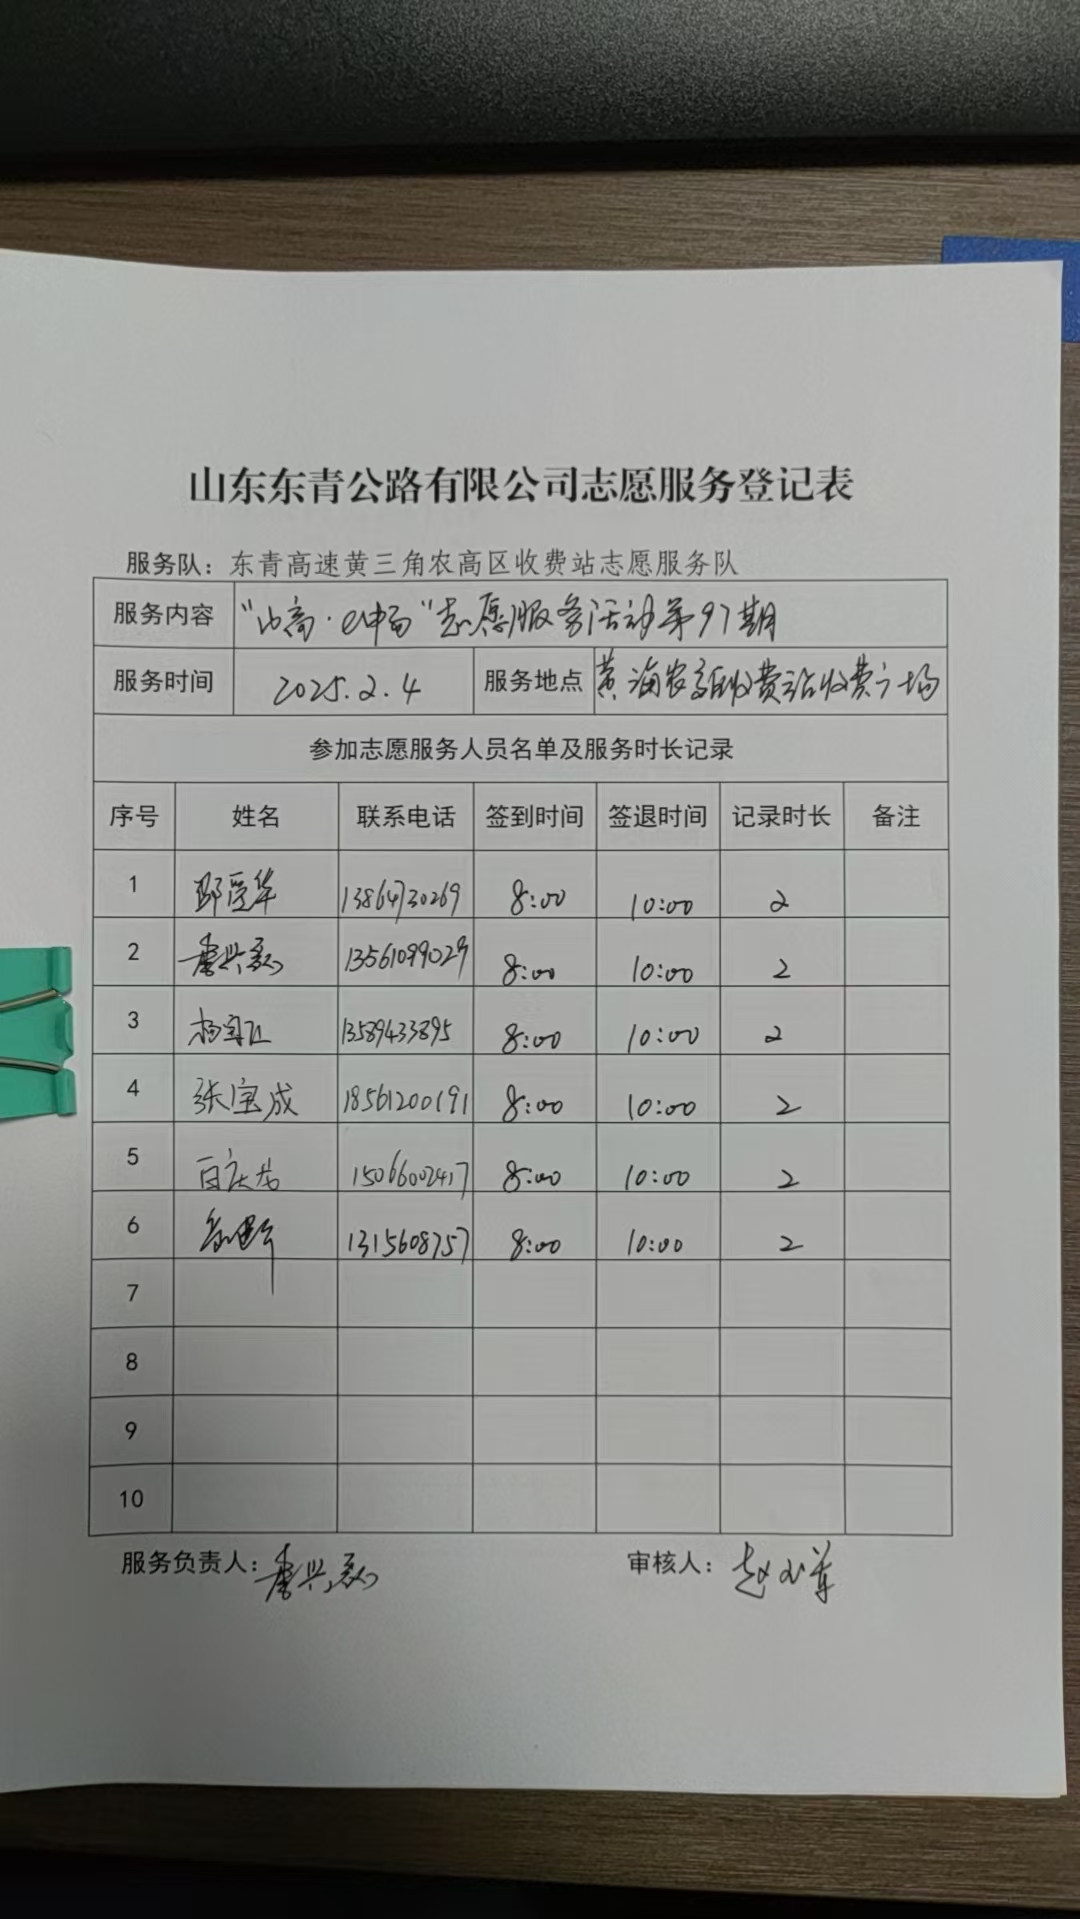 山东东青公路有限公司志愿服务登记表
服务队：东青高速黄三角农高区收费站志愿服务队
服务内容 “山高·e中畅”志愿服务活动第97期
服务时间 2025.2.4 服务地点 黄海农高区收费站收费广场
参加志愿服务人员名单及服务时长记录
序号 姓名 联系电话 签到时间 签退时间 记录时长 备注
1 13864730269 8:00 10:00 2
2 13561099029 8:00 10:00 2
3 13589433895 8:00 10:00 2
4 张宝成 18561200191 8:00 10:00 2
5 15066002417 8:00 10:00 2
6 1315608757 8:00 10:00 2
7
8
9
10
服务负责人： 审核人：